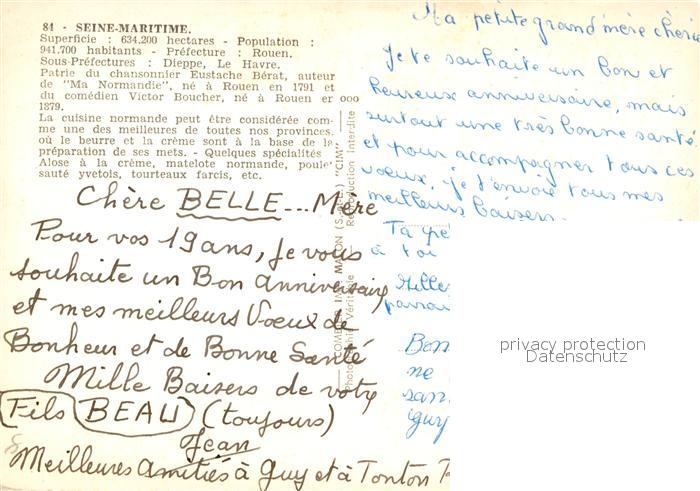 84 - SEINE-MARITIME.
Superficie : 634.200 hectares - Population :
941.700 habitants - Préfecture : Rouen.
Sous-Préfectures : Dieppe, Le Havre.
Patrie du chansonnier Eustache Bérat, auteur
de "Ma Normandie", né à Rouen en 1791 et
du comédien Victor Boucher, né à Rouen en
1879.
La cuisine normande peut être considérée com-
me une des meilleures de toutes nos provinces.
où le beurre et la crème sont à la base de la
préparation de ses mets. - Quelques spécialités
Alose à la crème, matelote normande, poule
sauté yvetois, tourteaux farcis, etc.
Chère BELLE...Mère
Pour vos 19 ans, je vous
souhaite un Bon anniversaire
et mes meilleurs Voeux de
Bonheur et de Bonne Santé
Mille Baisers de votre
Fils BEAU (toujours)
Jean
Meilleures amitiés à Guy et à Tonton
MACON
"CIM"
Reproduction interdite
Ma petite grand'mère chérie
Je te souhaite un bon et
heureux anniversaire, mais
surtout une très bonne santé.
et pour accompagner tous ces
voeux, je t'envoie tous mes
meilleurs baisers.
Ta pe
à toi
Mille
Bon
ne
san
guy
privacy protection
Datenschutz